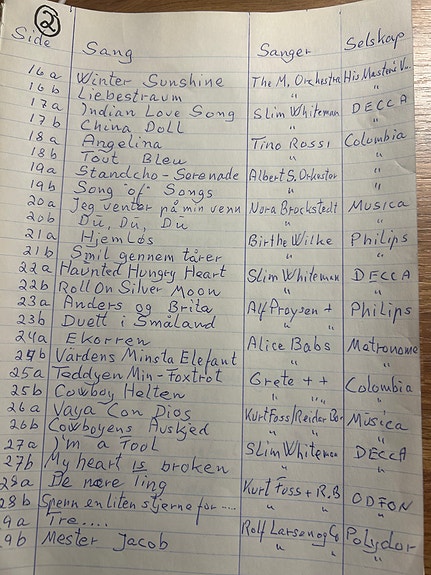 2
Side Sang Sanger Selskap
16a Winter Sunshine The M. Orchestra His Master's V..
16b Liebestraum " "
17a Indian Love Song Slim Whiteman DECCA
17b China Doll " "
18a Angelina Tino Rossi Columbia
18b Tout Bleu " "
19a Standcho-Serenade Albert S. Orkester "
19b Song "of" Songs " "
20a Jeg venter på min venn Nora Brockstedt Musica
20b Dú, Dú, Du " "
21a Hjemløs Birthe Wilke Philips
21b Smil gennem tårer " "
22a Haunted Hungry Heart Slim Whiteman DECCA
22b Roll On Silver Moon " "
23a Anders og Brita Alf Prøysen + Philips
23b Duett i Småland " "
24a Ekorren Alice Babs Metronome
24b Värdens Minsta Elefant " "
25a Teddyen Min-Foxtrot Grete + + Colombia
25b Cowboy Helten " " "
26a Vaya Con Dios Kurt Foss/Reidar Bø- Musica
26b Cowboyens Avskjed " "
27a I'm a Fool Slim Whiteman DECCA
27b My heart is broken " "
28a De nære Ting Kurt Foss + R.B ODEON
28b Spenn en liten stjerne for ..... " "
9a Tre..... Rolf Larsen og Co Polydor
9b Mester Jacob " "